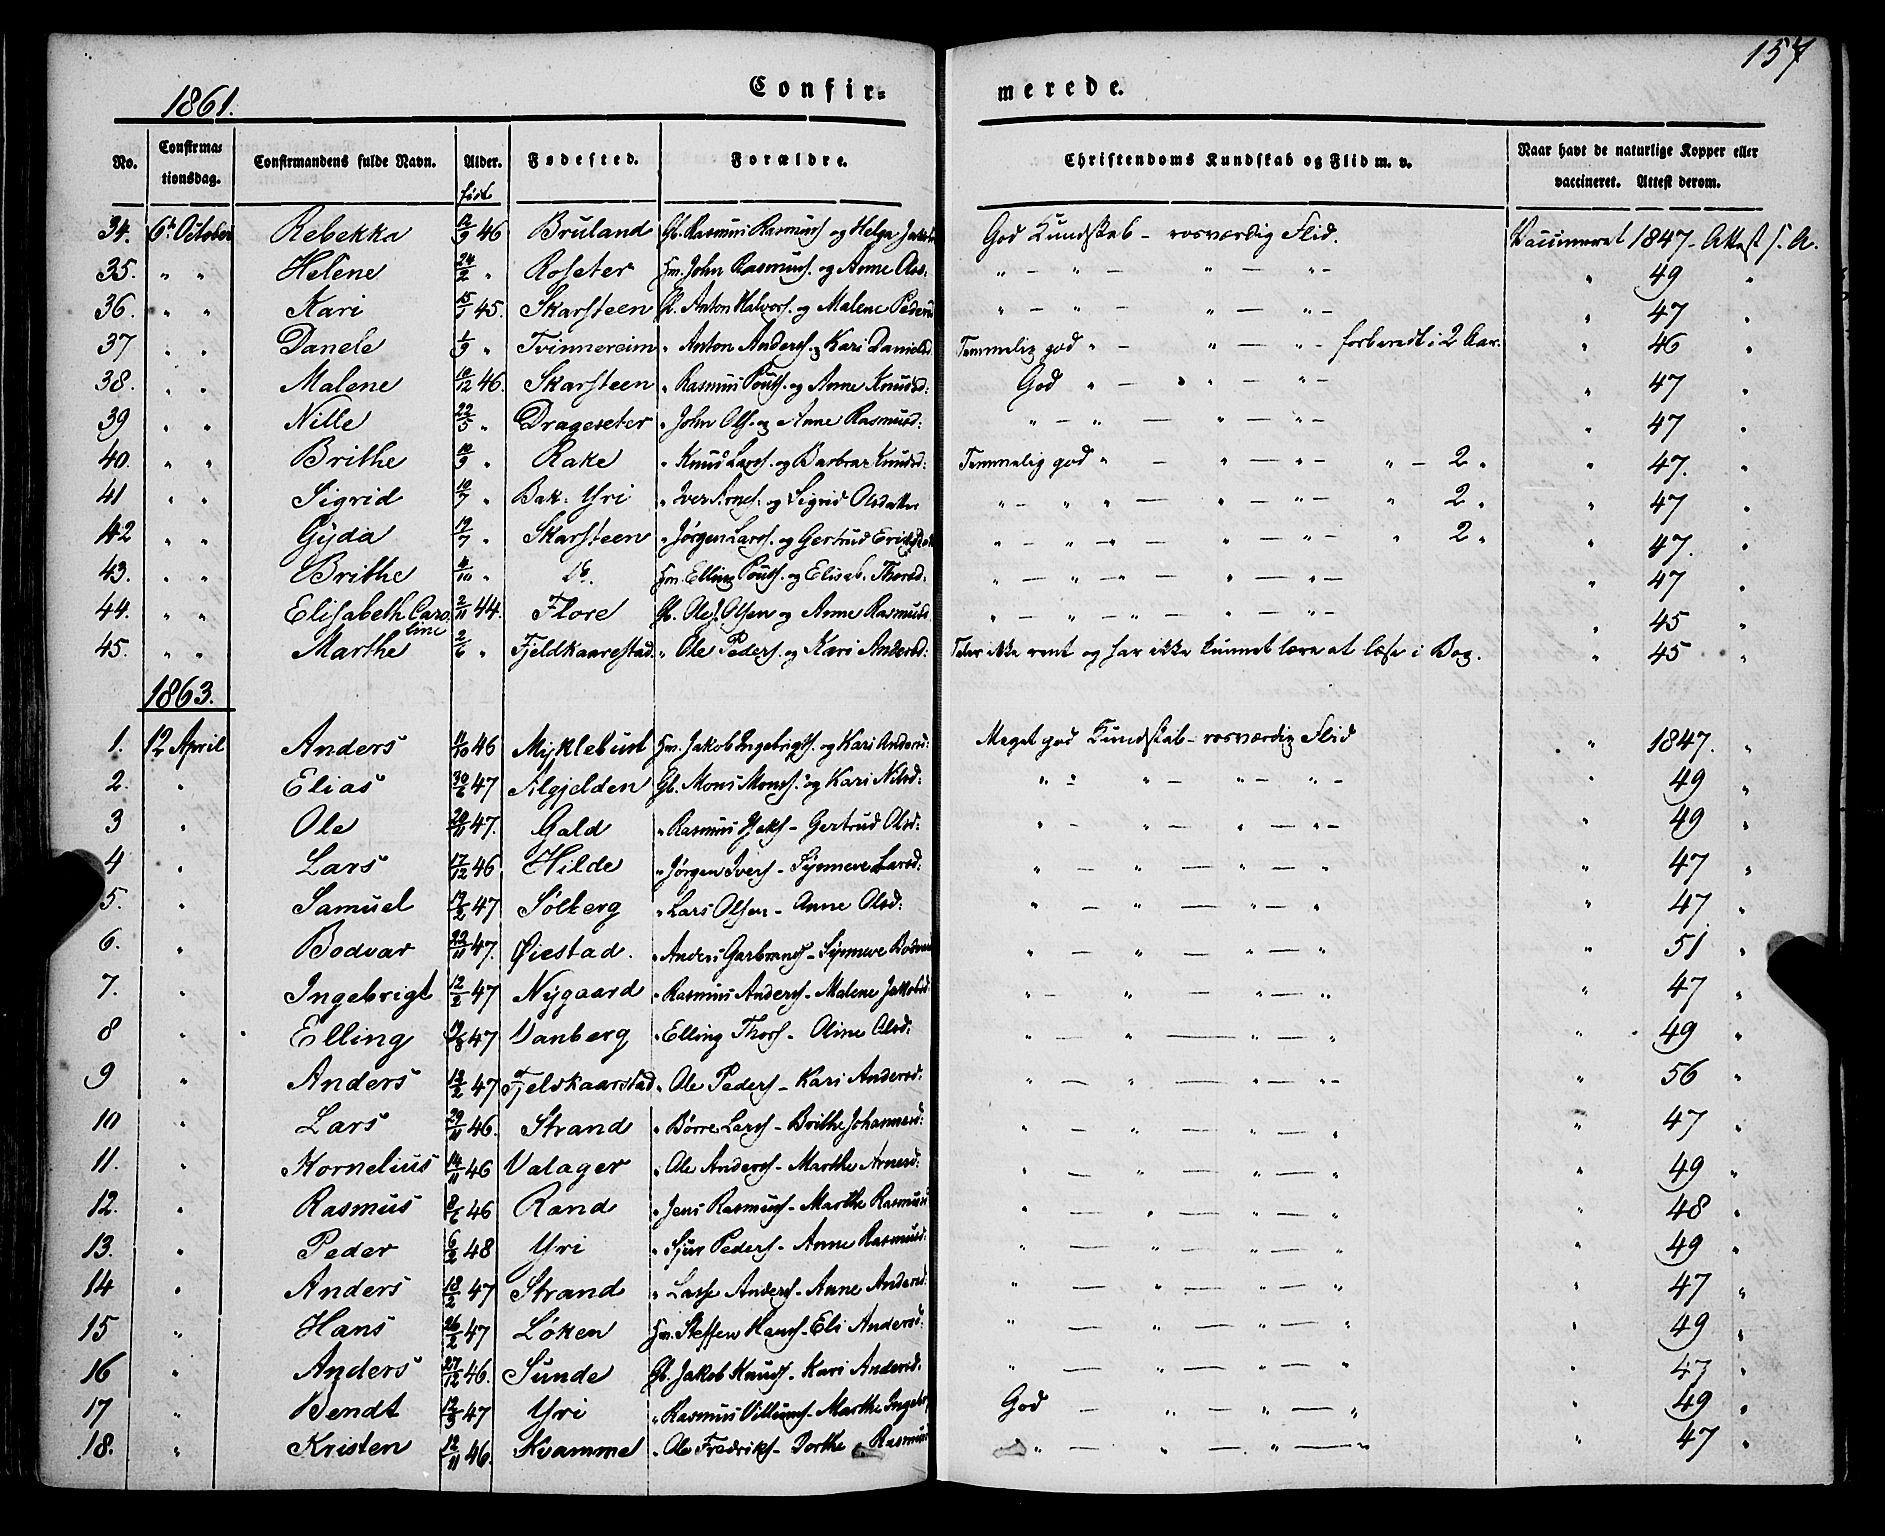 157
1861.
Confir-
merede.
No. Confirma-tionsdag. Confirmandens fulde Navn. Alder. Fødested. Forældre. Christendoms Kundskab og Flid m. v. Naar havt de naturlige Kopper eller vaccineret. Attest derom.
født
34. 6te October Rebekka 12/9 46 Bruland Gb. Rasmus Rasmuss og Helga God Kundskab - rosværdig Flid. Vaccineret 1847 - Attest s. A.
35. " " Helene 24/2 " Roseter Hm. John Rasmuss. og Anne Ols: " - " - " - " - " 49 "
36. " " Kari 15/5 45. Skarsteen Gb. Anton Halvors. og Malene Pedersd " - " - " - " - " 47 "
37 " " Danele 1/9 " Tvinnereim " Anton Anderss. og Kari Danielsd. Temmelig god " - " - " - forberedt i 2 Aar. " 46 "
38. " " Malene 10/12 46. Skarsteen " Rasmus Pouls. og Anne Knudsd: God " - " " - " - " 47 "
39 " " Nille 22/5 " Drageseter " John Ols. og Anne Rasmusd: " - " - " - " - " 47 "
40. " " Brithe 10/9 " Rake " Knud Larss. og Barbra Knudsd: Temmelig god " - " - " - " - 2 " " 47. "
41 " " Sigrid 10/7 " Bak: Yri " Iver Arnes. og Sigrid Olsdatter " - " " - " - " - " 2 " " 47 "
42 " " Gyda 19/7 " Skarsteen " Jørgen Larss. og Gertrud " - " - " - " - " - " 2 " " 47. "
43. " " Brithe 4/10 " Do. Hm. Elling Pouls. og Elisab. Thorsd: " - " - " - " - " - " 47 "
44. " " Elisabeth Caroline 2/11 44. Flore Gb. Ole J. Olsen og Anne Rasmusd " - " - " - " - " - " 45 "
45. " " Marthe 2/6 " Fjeldkaarestad " Ole Peders. og Kari Andersd: Taler ikke rent og har ikke kunnet lære at læse i Bog. " 45 "
1863.
1. 12 April Anders 11/10 46 Myklebust Hm. Jakob Ingebrigts. og Kari Andersd: Meget god Kundskab - rosværdig Flid " 1847. "
2. " Elias 30/6 47 Filgjelden Gb. Mons Monss. og Kari Nilsd: " - " - " - " - " 49 "
3 " Ole 20/11 47. Gald " Rasmus Jaks - Gertrud Olsd: " - " - " - " - " 49 "
4 " Lars 17/12 46 Hilde " Jørgen Ivers - Synneve Larsd: " - " - " - " - " 47 "
5. " Samuel 17/2 47 Solberg " Lars Olsen - Anne Olsd: " - " - " - " " 47 "
6. " Bodvar 23/11 47. Øiestad. " Anders Garbrands - Synneve " - " - " - " " 51 "
7. " Ingebrigt 12/2 47 Nygaard " Rasmus Anderss - Malene Jakobsd: " - " - " - " " 47 "
8 " Elling 19/8 47 Vanberg " Elling Thors - Oline Olsd: " - " - " - " " 49 "
9 " Anders 13/2 47 Fjelskaarstad " Ole Peders - Kari Andersd: " - " - " - " - " 56 "
10 " Lars 29/11 46. Strand " Børre Larss - Brithe Johannesd: " - " - " - " " 47 "
11. " Kornelius 14/11 46 Valager " Ole Anderss - Marthe Arnesd: " - " - " - " " 49 "
12. " Rasmus 8/6 46 Rand " Jens Rasmuss - Marthe Rasmusd " - " - " - " " 48 "
13. " Peder 6/2 48 Yri " Sjur Peders - Anne Rasmusd: " - " - " - " " 49 "
14 " Anders 18/2 47 Strand " Lasse Anderss - Anne Andersd: " - " - " - " " 47 "
15 " Hans 26/2 47 Løken Hm. Steffen Hanss - Eli Andersd: " - " - " - " " 49 "
16 " Anders 27/12 46. Sunde Gb. Jakob Knuds - Kari Andersd: " - " - " - " " 47 "
17 " Bendt 12/3 47 Yri " Rasmus Villums - Marthe God - " - " - " " 49 "
18. " Kristen 12/11 46. Kvamme " Ole Fredriks - Dorthe Rasmusd " - " - " - " " 47 "